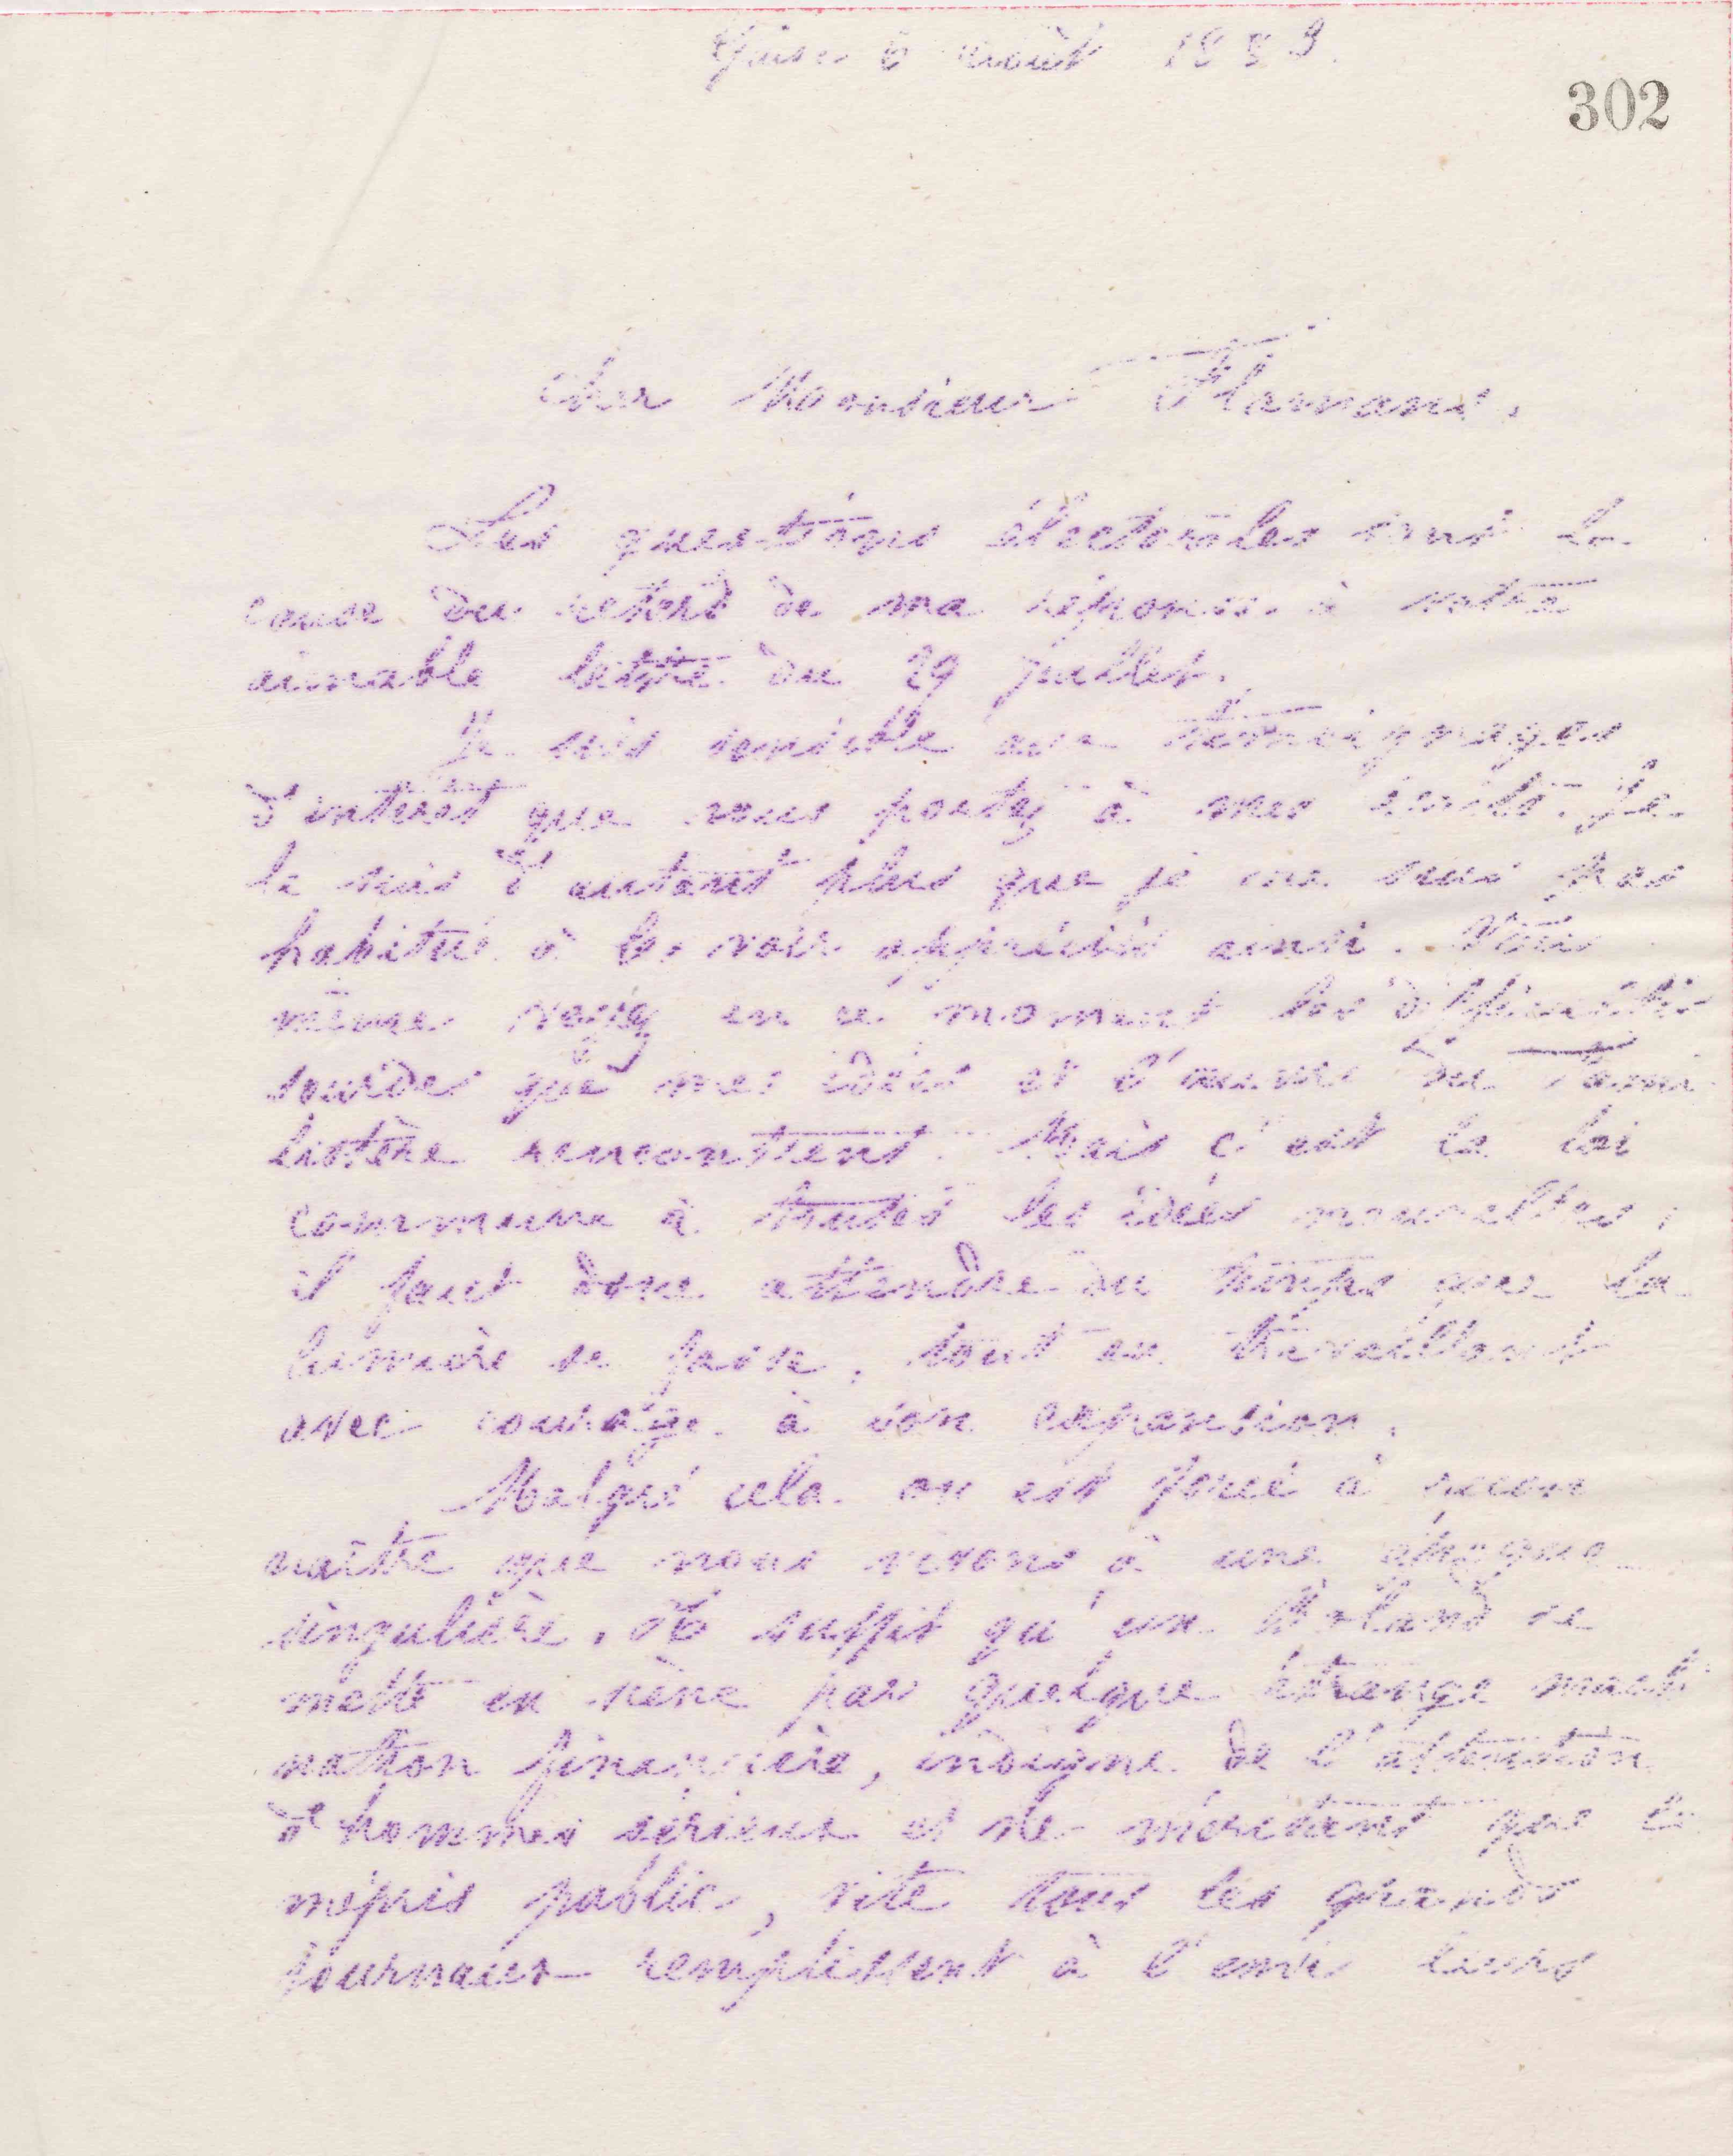 Guise 6 août 1883.
302
Cher Monsieur Flamant,
Les questions électorales sont la
cause du retard de ma réponse à votre
aimable lettre du 29 juillet.
Je suis sensible aux témoignages
d'intérêt que vous portez à mes écrits. Je
le suis d'autant plus que je ne suis pas
habitué à les voir appréciés ainsi. Vous
même voyez en ce moment les difficultés
sourdes que mes idées et l'œuvre du Fami
listère rencontrent. Mais c'est la loi
commune à toutes les idées nouvelles,
il faut donc attendre du temps que la
lumière se fasse, tout en travaillant
avec courage à son expansion.
Malgré cela on est forcé à recon
naître que nous vivons à une époque
singulière. Il suffit qu'un se
mette en scène par quelque étrange machi
nation financière, indigne de l'attention
d'hommes sérieux et ne méritant que le
mépris public, vite tous les grands
journaux remplissent à l'envi leurs